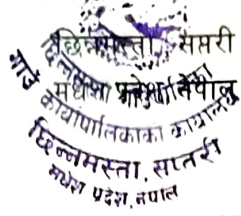 छिन्नमस्ता सप्तरी
मधेश प्रदेश नेपाल
गाउँ कार्यपालिकाको कार्यालय
छिन्नमस्ता, सप्तरी
मधेश प्रदेश, नेपाल